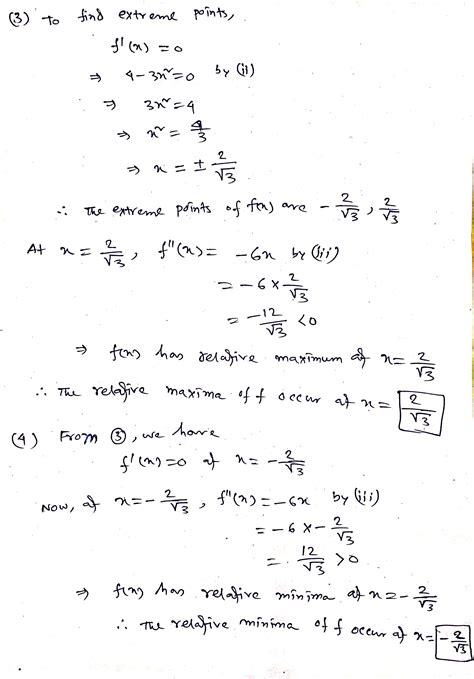 (3) To find extreme points,
f'(x) = 0
⇒ 4-3x² = 0 by (ii)
⇒ 3x² = 4
⇒ x² = 4/3
⇒ x = ± 2/√3
∴ The extreme points of f(x) are -2/√3, 2/√3
At x = 2/√3, f''(x) = -6x by (iii)
= -6 × 2/√3
= -12/√3 < 0
⇒ f(x) has relative maximum at x = 2/√3
∴ The relative maxima of f occur at x = 2/√3
(4) From ③, we have
f'(x) = 0 at x = -2/√3
Now, at x = -2/√3, f''(x) = -6x by (iii)
= -6 × -2/√3
= 12/√3 > 0
⇒ f(x) has relative minima at x = -2/√3
∴ The relative minima of f occur at x = -2/√3